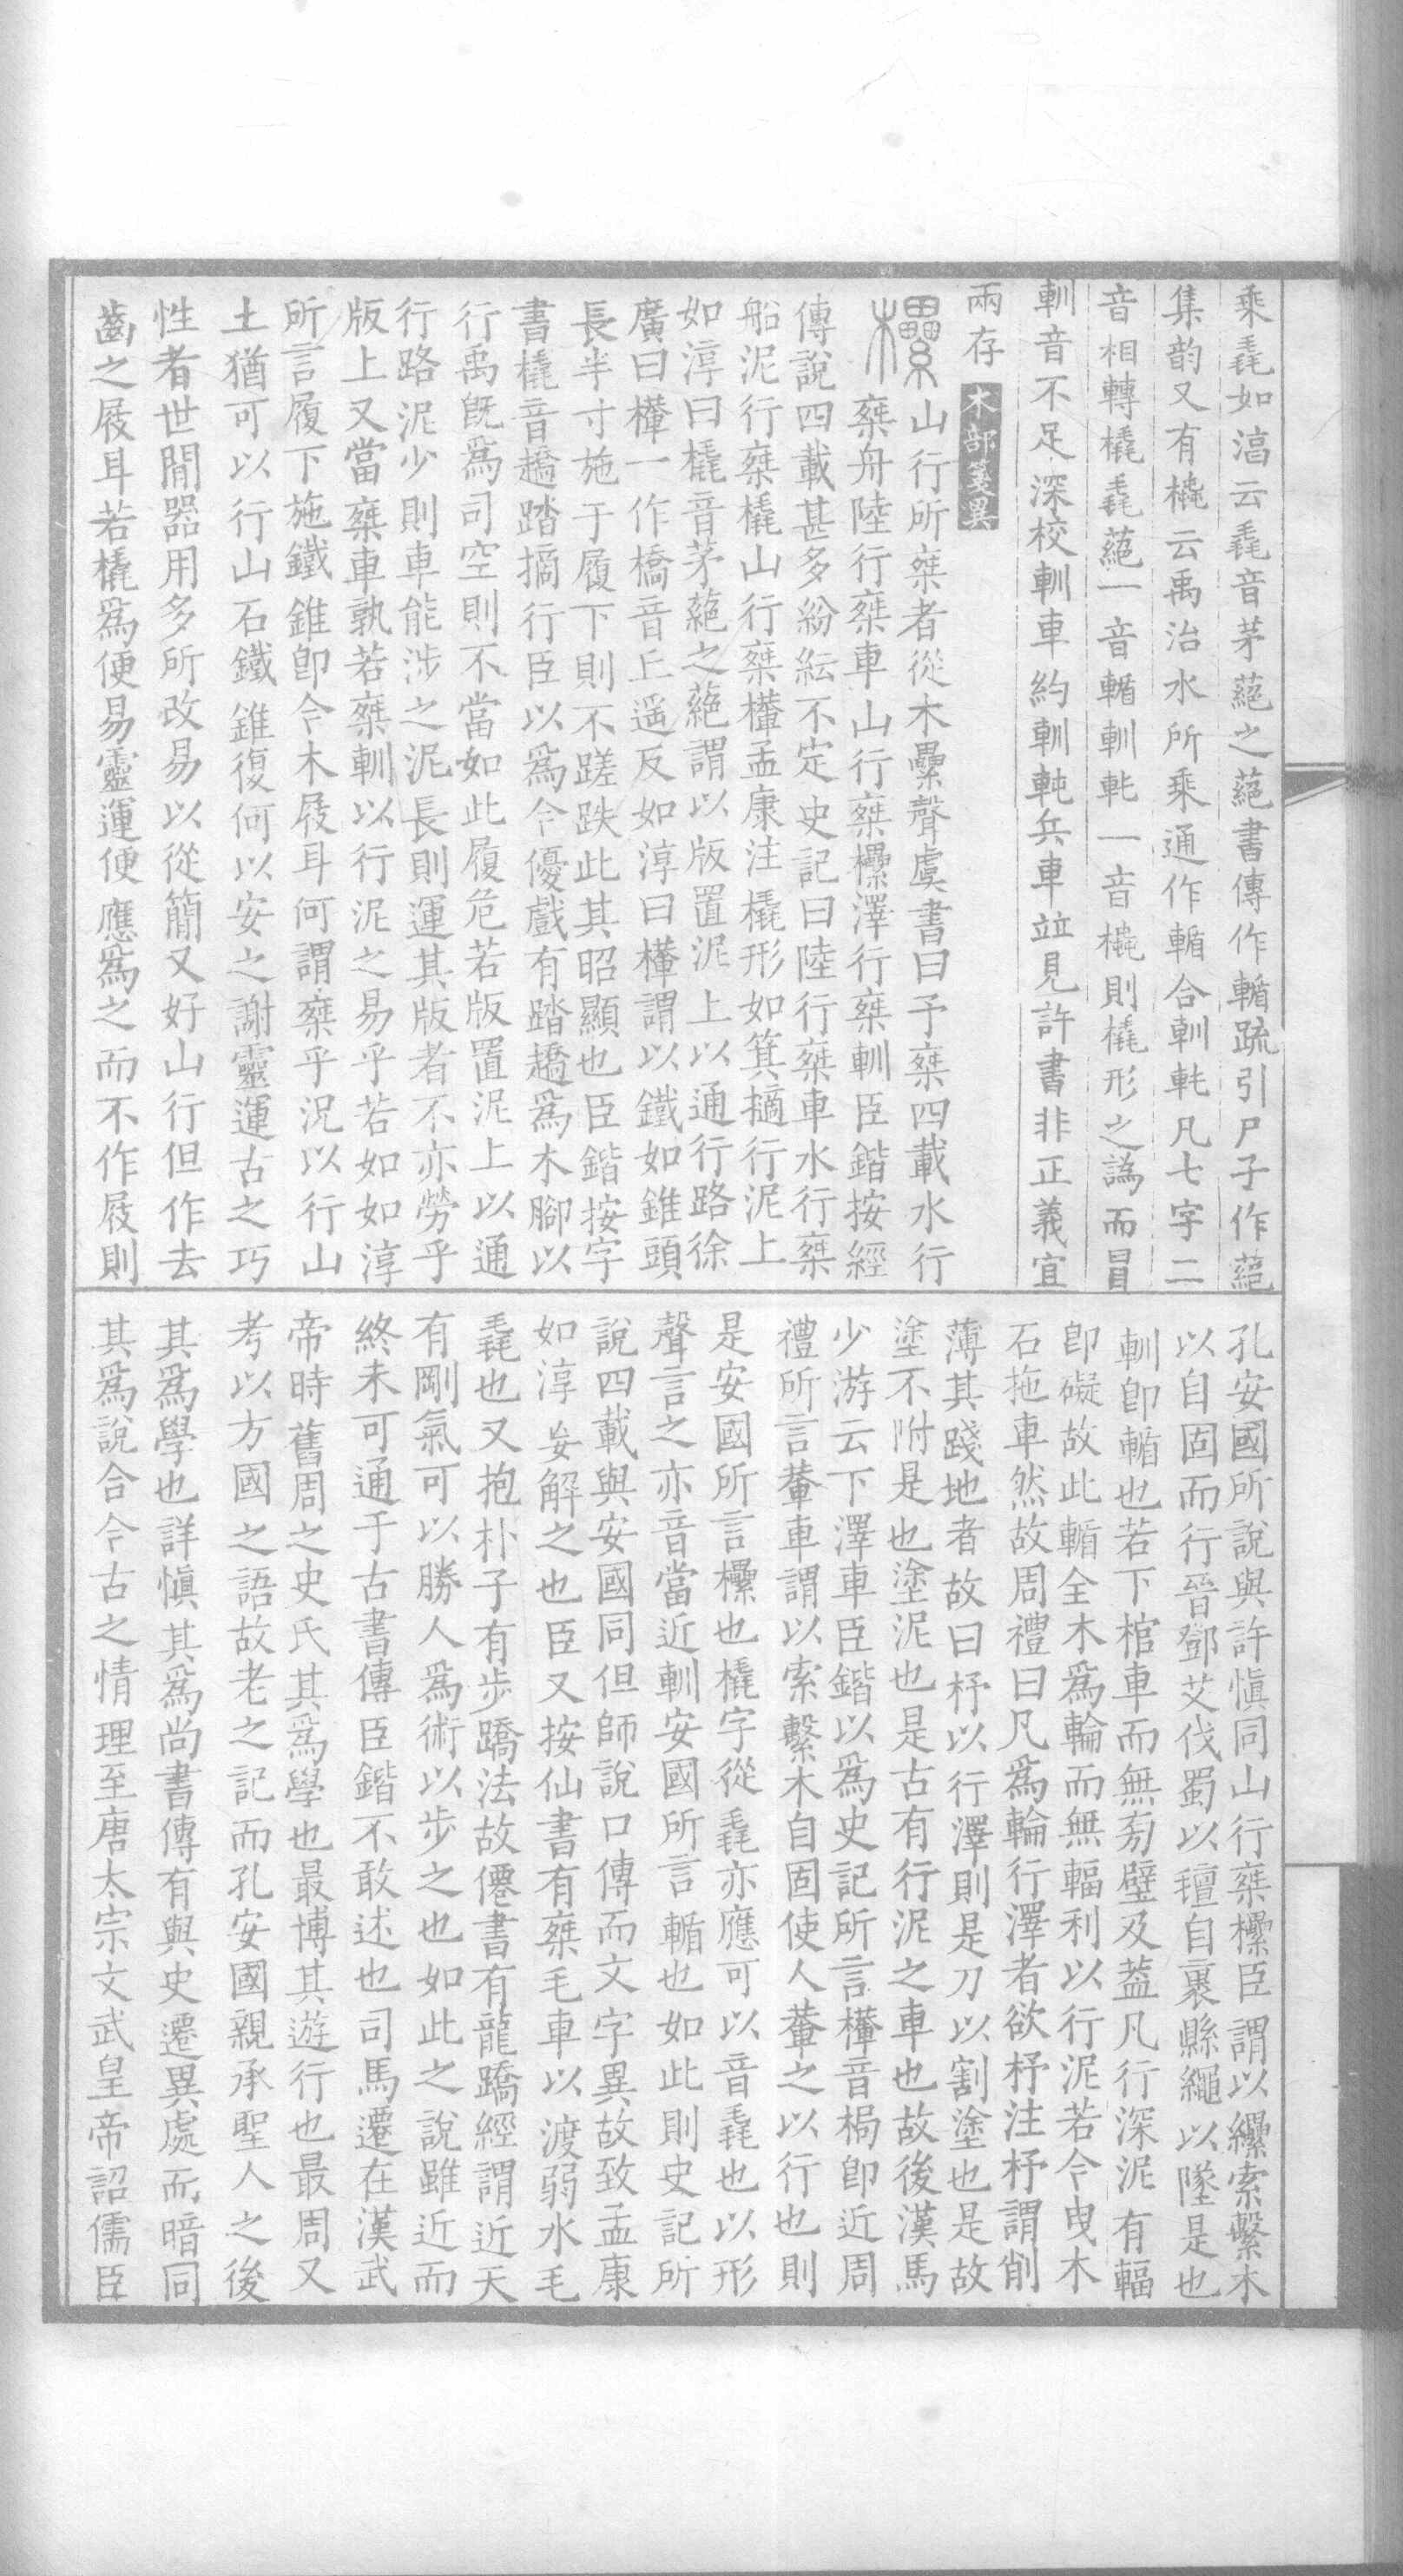 乘毳如淳云毳音茅蕝之蕝書傳作輴䟽引尸子作蕝
集韵又有橇云禹治水所乘通作輴合軕軞凡七字二
音相轉橇毳蕝一音輴軕一音橇則橇形之譌而冒
軕音不足深校軕車約軕軘兵車竝見許書非正義宜
兩存
木部箋異
欙山行所桒者從木纍聲虞書曰予桒四載水行
桒舟陸行桒車山行桒欙澤行桒軕臣鍇按經
傳說四載甚多紛紜不定史記曰陸行桒車水行桒
船泥行桒橇山行桒檋孟康注橇形如箕擿行泥上
如淳曰橇音茅蕝之蕝謂以版置泥上以通行路徐
廣曰檋一作橋音丘遥反如淳曰檋謂以鐵如錐頭
長半寸施于履下則不蹉跌此其昭顯也臣鍇按字
書橇音趫踏摘行臣以爲今優戲有踏趫爲木腳以
行禹旣爲司空則不當如此履危若版置泥上以通
行路泥少則車能涉之泥長則運其版者不亦勞乎
版上又當桒車孰若桒軕以行泥之易乎若如如淳
所言履下施鐵錐卽今木屐耳何謂桒乎況以行山
土猶可以行山石鐵錐復何以安之謝靈運古之巧
性者世閒器用多所改易以從簡又好山行但作去
齒之屐耳若橇爲便易靈運便應爲之而不作屐則
孔安國所說與許愼同山行桒欙臣謂以纍索繫木
以自固而行晉鄧艾伐蜀以氊自裹縣繩以墜是也
軕卽輴也若下棺車而無㫄壁及蓋凡行深泥有輻
卽礙故此輴全木爲輪而無輻利以行泥若今曳木
石拖車然故周禮曰凡爲輪行澤者欲杼注杼謂削
薄其踐地者故曰杼以行澤則是刀以割塗也是故
塗不附是也塗泥也是古有行泥之車也故後漢馬
少游云下澤車臣鍇以爲史記所言檋音梮卽近周
禮所言輂車謂以索繫木自固使人輂之以行也則
是安國所言欙也橇字從毳亦應可以音毳也以形
聲言之亦音當近軕安國所言輴也如此則史記所
說四載與安國同但師說口傳而文字異故致孟康
如淳妄解之也臣又按仙書有桒毛車以渡弱水毛
毳也又抱朴子有步蹻法故僊書有龍蹻經謂近天
有剛氣可以勝人爲術以步之也如此之說雖近而
終未可通于古書傳臣鍇不敢述也司馬遷在漢武
帝時舊周之史氏其爲學也最博其遊行也最周又
考以方國之語故老之記而孔安國親承聖人之後
其爲學也詳愼其爲尚書傳有與史遷異處而暗同
其爲說合今古之情理至唐太宗文武皇帝詔儒臣